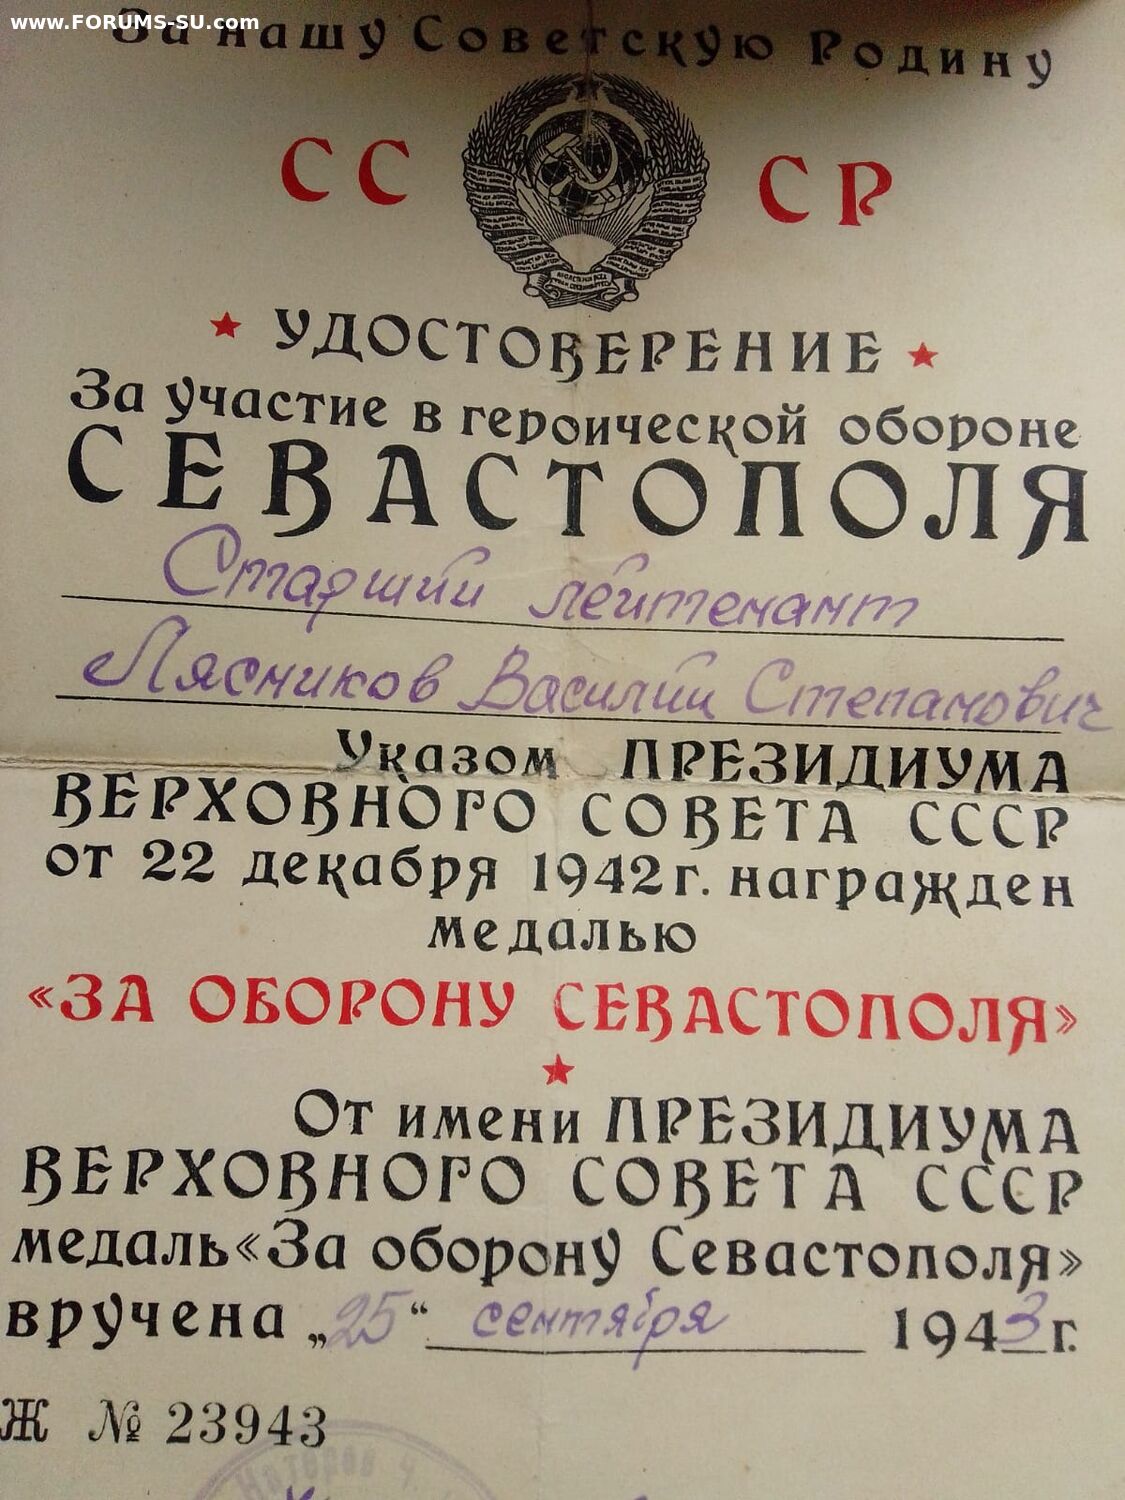 www.FORUMS-SU.com
За нашу Советскую Родину
СС СР
УДОСТОВЕРЕНИЕ
За участие в героической обороне
СЕВАСТОПОЛЯ
Старший лейтенант
Лясников Василий Степанович
Указом ПРЕЗИДИУМА
ВЕРХОВНОГО СОВЕТА СССР
от 22 декабря 1942 г. награжден
медалью
«ЗА ОБОРОНУ СЕВАСТОПОЛЯ»
От имени ПРЕЗИДИУМА
ВЕРХОВНОГО СОВЕТА СССР
медаль «За оборону Севастополя»
вручена „25“ сентября 1943 г.
Ж № 23943